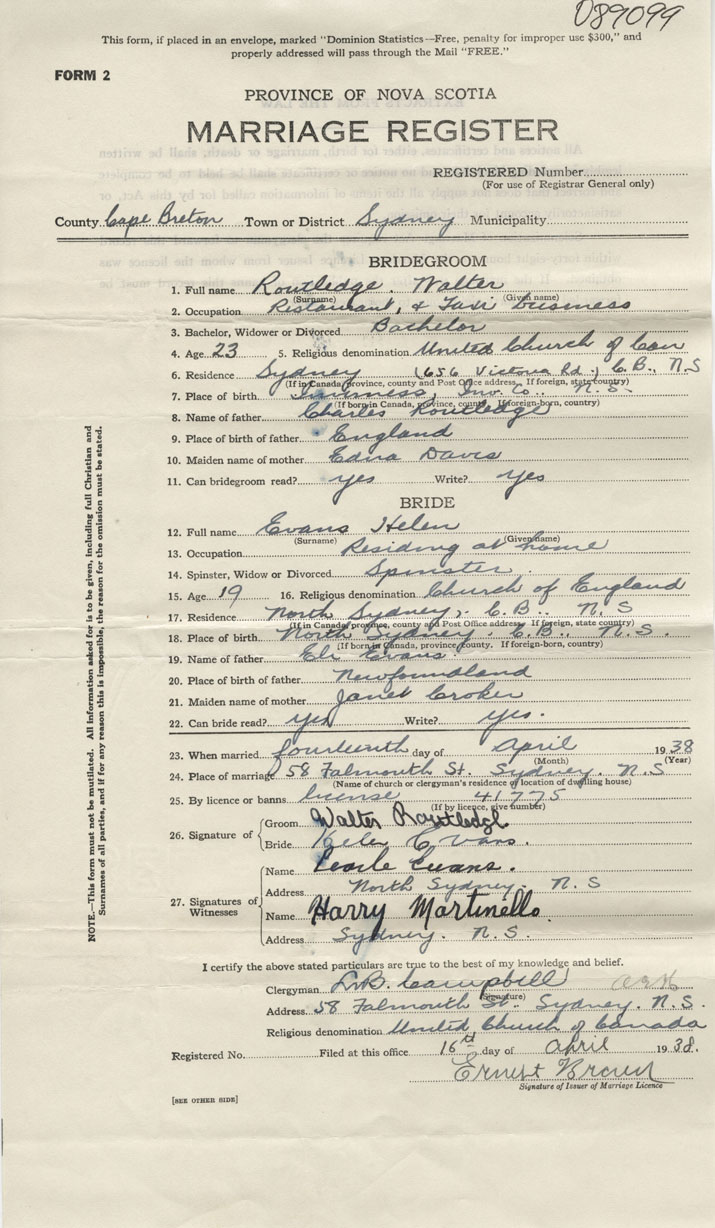 089099
This form, if placed in an envelope, marked "Dominion Statistics—Free, penalty for improper use $300," and
properly addressed will pass through the Mail "FREE."
FORM 2
PROVINCE OF NOVA SCOTIA
MARRIAGE REGISTER
REGISTERED Number
(For use of Registrar General only)
County Cape Breton Town or District Sydney Municipality
BRIDEGROOM
1. Full name Routledge. Walter
(Surname) (Given name)
2. Occupation Restaurant, & Taxi business
3. Bachelor, Widower or Divorced Bachelor
4. Age 23 5. Religious denomination United Church of Can
6. Residence Sydney (656 Victoria Rd.) C.B., N.S
(If in Canada, province, county and Post Office address, If foreign, state country)
7. Place of birth Inverness, Inv. Co. N.S.
(If born in Canada, province, county, If foreign-born, country)
8. Name of father Charles Routledge
9. Place of birth of father England
10. Maiden name of mother Edna Davis
11. Can bridegroom read? yes Write? yes
BRIDE
12. Full name Evans Helen
(Surname) (Given name)
13. Occupation Residing at home
14. Spinster, Widow or Divorced Spinster
15. Age 19 16. Religious denomination Church of England
17. Residence North Sydney, C.B., N.S
(If in Canada, province, county and Post Office address, If foreign, state country)
18. Place of birth North Sydney, C.B., N.S.
(If born in Canada, province, county, If foreign-born, country)
19. Name of father Eli Evans
20. Place of birth of father Newfoundland
21. Maiden name of mother Janet Croker
22. Can bride read? yes Write? yes.
23. When married fourteenth day of April 1938
(Month) (Year)
24. Place of marriage 58 Falmouth St. Sydney. N.S
(Name of church or clergyman's residence of location of dwelling house)
25. By licence or banns license 41775
(If by licence, give number)
26. Signature of
Groom Walter Routledge
Bride Helen Evans.
27. Signatures of Witnesses
Name Evans.
Address North Sydney, N.S
Name Harry Martinello.
Address Sydney. N.S.
I certify the above stated particulars are true to the best of my knowledge and belief.
Clergyman Campbell
(Signature)
Address 58 Falmouth St. Sydney. N.S.
Religious denomination United Church of Canada
Registered No. Filed at this office 16th day of April 1938.
Ernest Brown
Signature of Issuer of Marriage Licence
[SEE OTHER SIDE]
NOTE.—This form must not be mutilated. All information asked for is to be given, including full Christian and
Surnames of all parties, and if for any reason this is impossible, the reason for the omission must be stated.